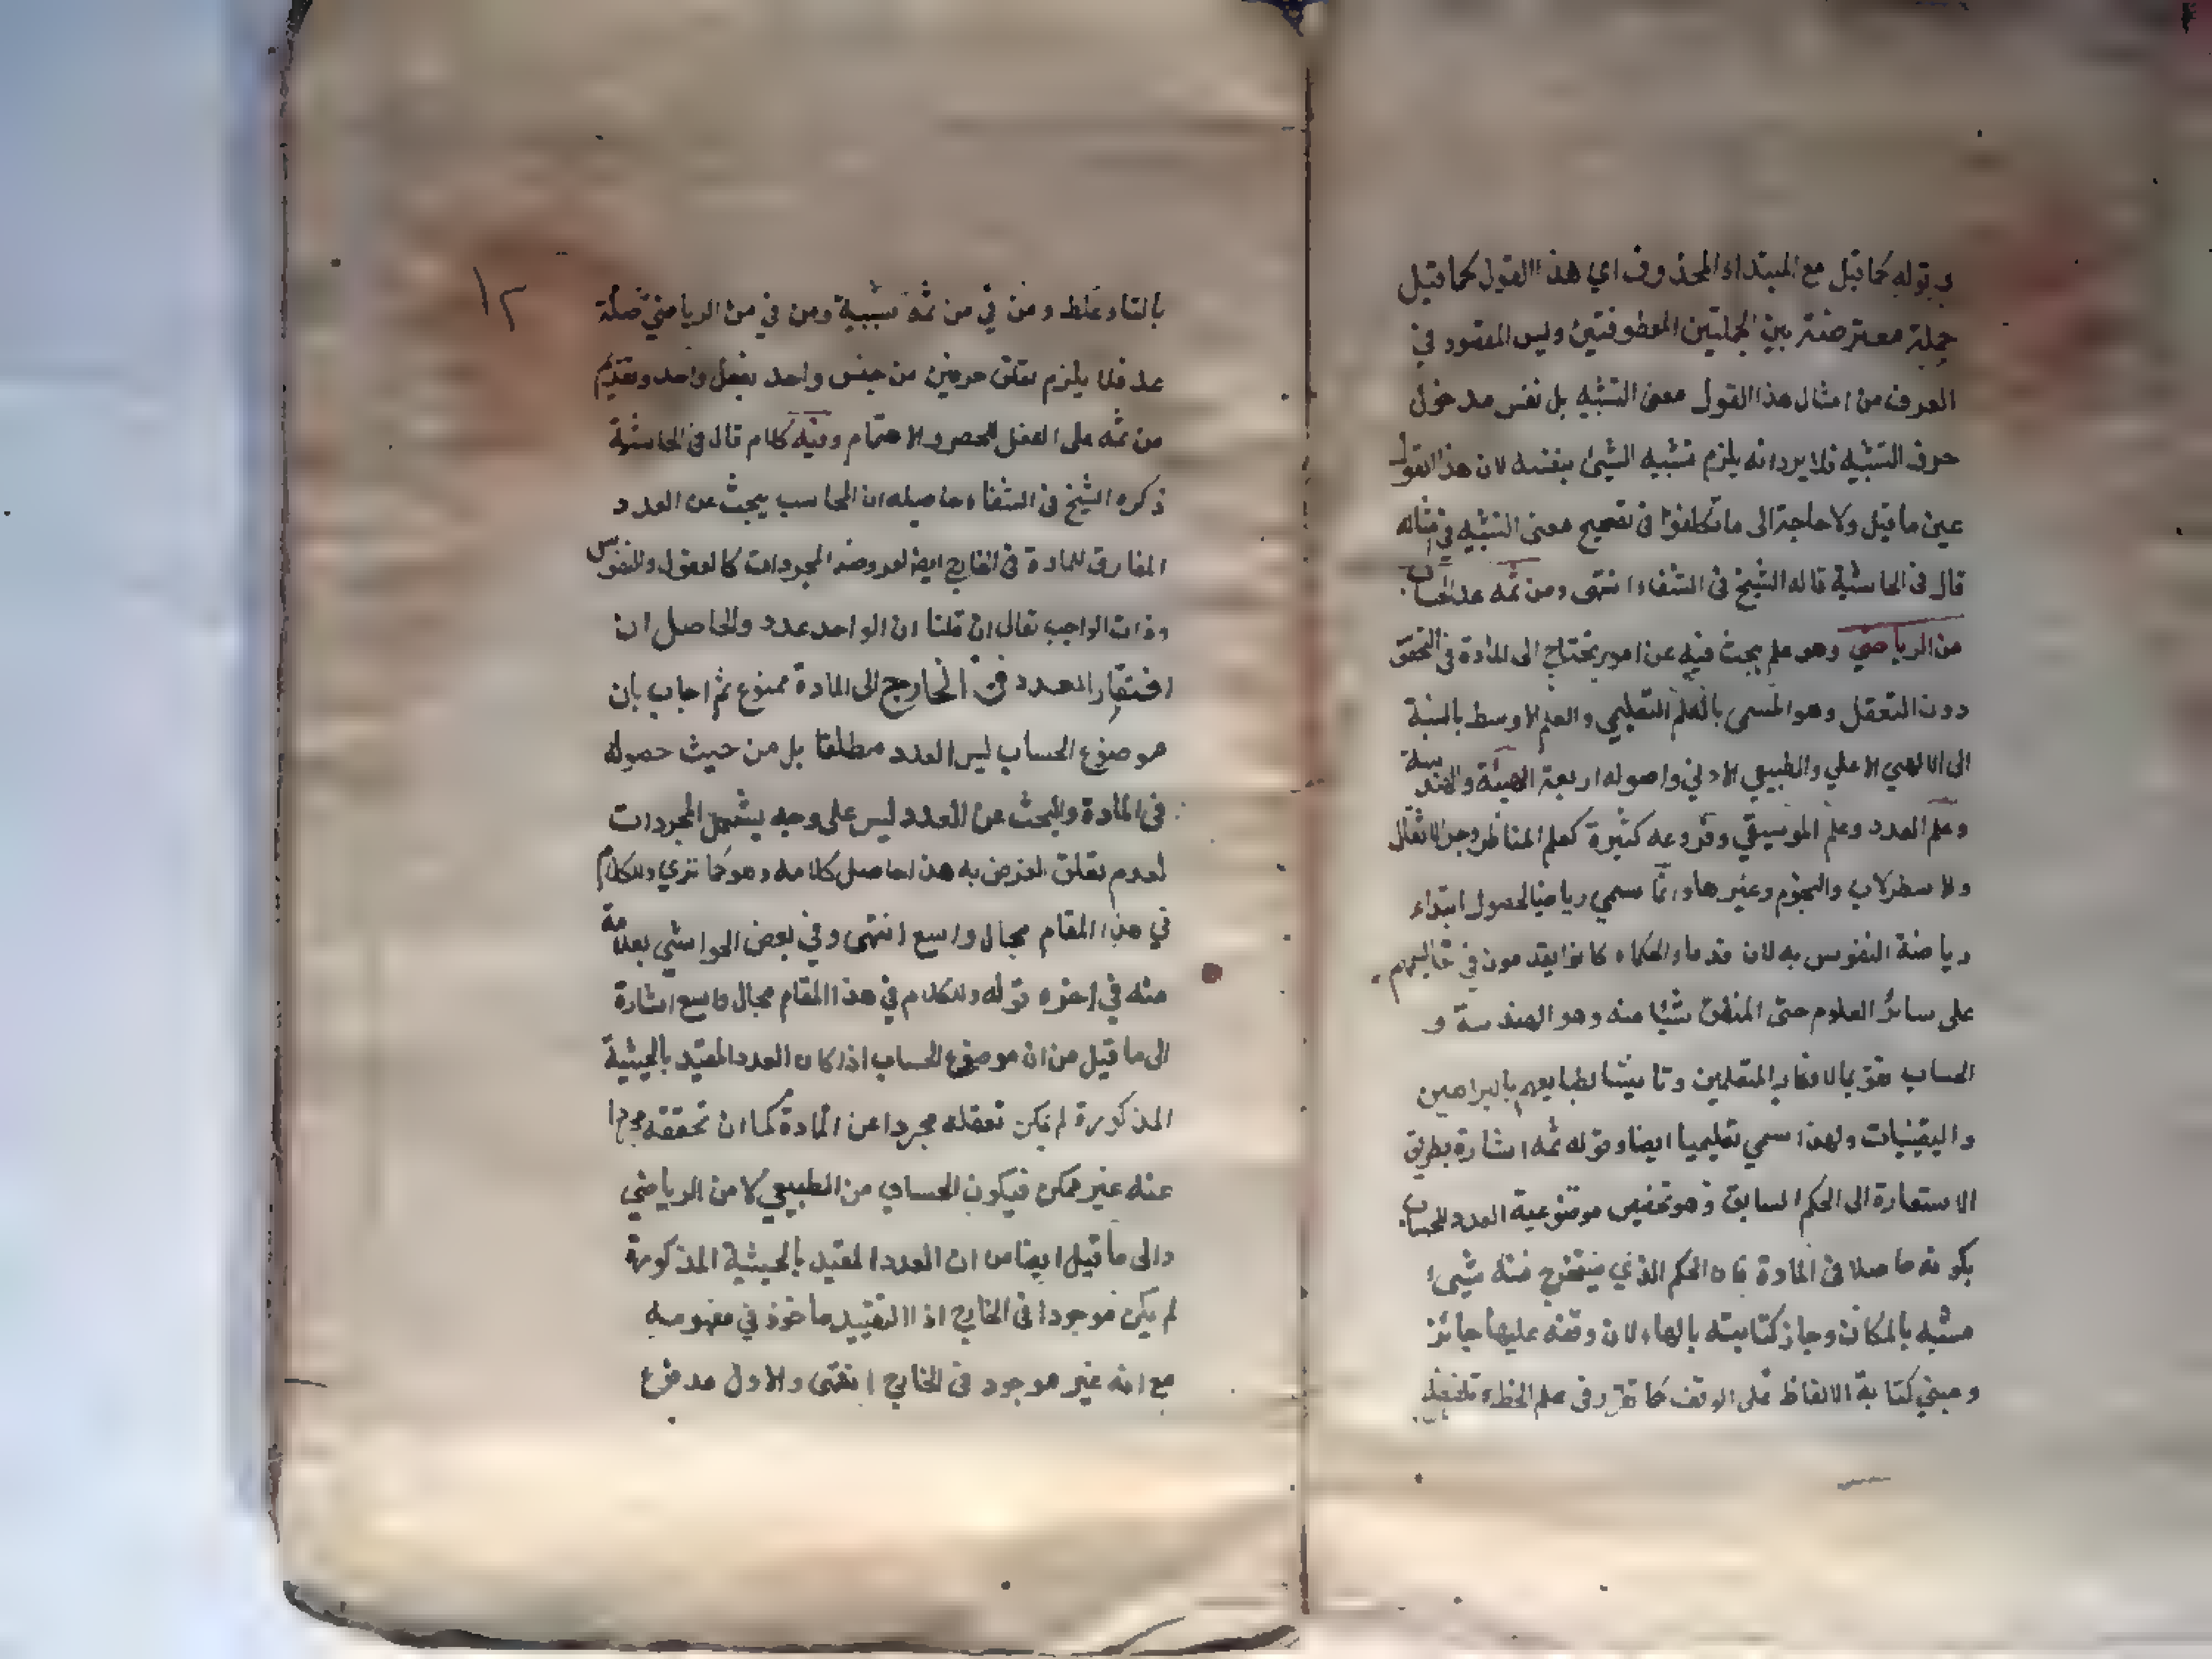 وبقوله كما قيل مع المبتداء المحذوف اي هذا القول كما قيل
جملة معترضة بين الجملتين المعطوفتين وليس المقصود في
العرف من امثال هذا القول معنى التشبيه بل نفس مدخول
حرف التشبيه فلا يرد انه يلزم تشبيه الشئ بنفسه لان هذا القول
عين ما قيل ولا حاجة الى ما تكلفوا فى تصحيح معنى التشبيه في مثاله
قال فى الحاشية قاله الشيخ فى الشفاء انتهى ومن ثمه عد الحساب
من الرياضي وهو علم يبحث فيه عن امور يحتاج الى المادة في التحقق
دون التعقل وهو المسمى بالعلم التعليمي والعلم الاوسط بالنسبة
الى الالهي الاعلي والطبيعي الادني واصوله اربعة الهيئة والهندسة
وعلم العدد وعلم الموسيقي وفروعه كثيرة كعلم المناظر وجر الاثقال
والاسطرلاب والنجوم وغيرها وانما سمي رياضيا لحصول ابتداء
رياضة النفوس به لان قدماء الحكماء كانوا يقدمون في تعاليمهم
على سائر العلوم حتى المنطق شيئا منه وهو الهندسة و
الحساب تقويما لافكار المتعلمين وتانيسا لطبايعهم بالبراهين
واليقينيات ولهذا سمي تعليميا ايضا وقوله ثمه اشارة بطريق
الاستعارة الى الحكم السابق وهو تخصيص موضوعية العدد للحساب
بكونه حاصلا فى المادة فان الحكم الذي يتفرع منه شيئ
مشبه بالمكان وجاز كتابته بالهاء لان وقفه عليها جائز
ومبني كتابة الالفاظ على الوقف كما تقرر فى علم الخط وتلفظه
١٢
بالتاء غلط ومن في من ثمه سببية ومن في من الرياضي صلة
عد فلا يلزم تعلق حرفين من جنس واحد بفعل واحد وتقديم
من ثمه على الفعل للحصر والاهتمام وفيه كلام قال فى الحاشية
ذكره الشيخ فى الشفاء حاصله ان المحاسب يبحث عن العدد
المفارق للمادة فى الخارج ايضا لعروضه المجردات كالعقول والنفوس
وذات الواجب تعالى ان قلنا ان الواحد عدد والحاصل ان
افتقار العدد في الخارج الى المادة ممنوع ثم اجاب بان
موضوع الحساب ليس العدد مطلقا بل من حيث حصوله
فى المادة والبحث عن العدد ليس على وجه يشمل المجردات
لعدم تعلق الغرض به هذا حاصل كلامه وهو كما تري وللكلام
في هذا المقام مجال واسع انتهى وفي بعض الحواشي بعلامة
منه في اخره قوله وللكلام في هذا المقام مجال واسع اشارة
الى ما قيل من ان موضوع الحساب اذا كان العدد المقيد بالحيثية
المذكورة لم يكن تعقله مجردا عن المادة كما ان تحققه مجردا
عنه غير ممكن فيكون الحساب من الطبيعي لا من الرياضي
والى ما قيل ايضا من ان العدد المقيد بالحيثية المذكورة
لم يكن موجودا فى الخارج اذ التقييد ماخوذ في مفهومه
مع انه غير موجود فى الخارج انتهى والاول مدفوع